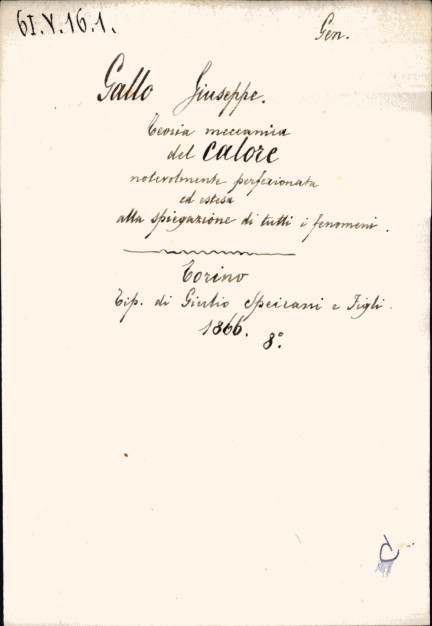 61.V.16.1.
Gen.
Gallo Giuseppe.
Teoria meccanica
del calore
notevolmente perfezionata
ed estesa
alla spiegazione di tutti i fenomeni.
Torino
Tip. di Giulio Speirani e Figli.
1866. 8°.